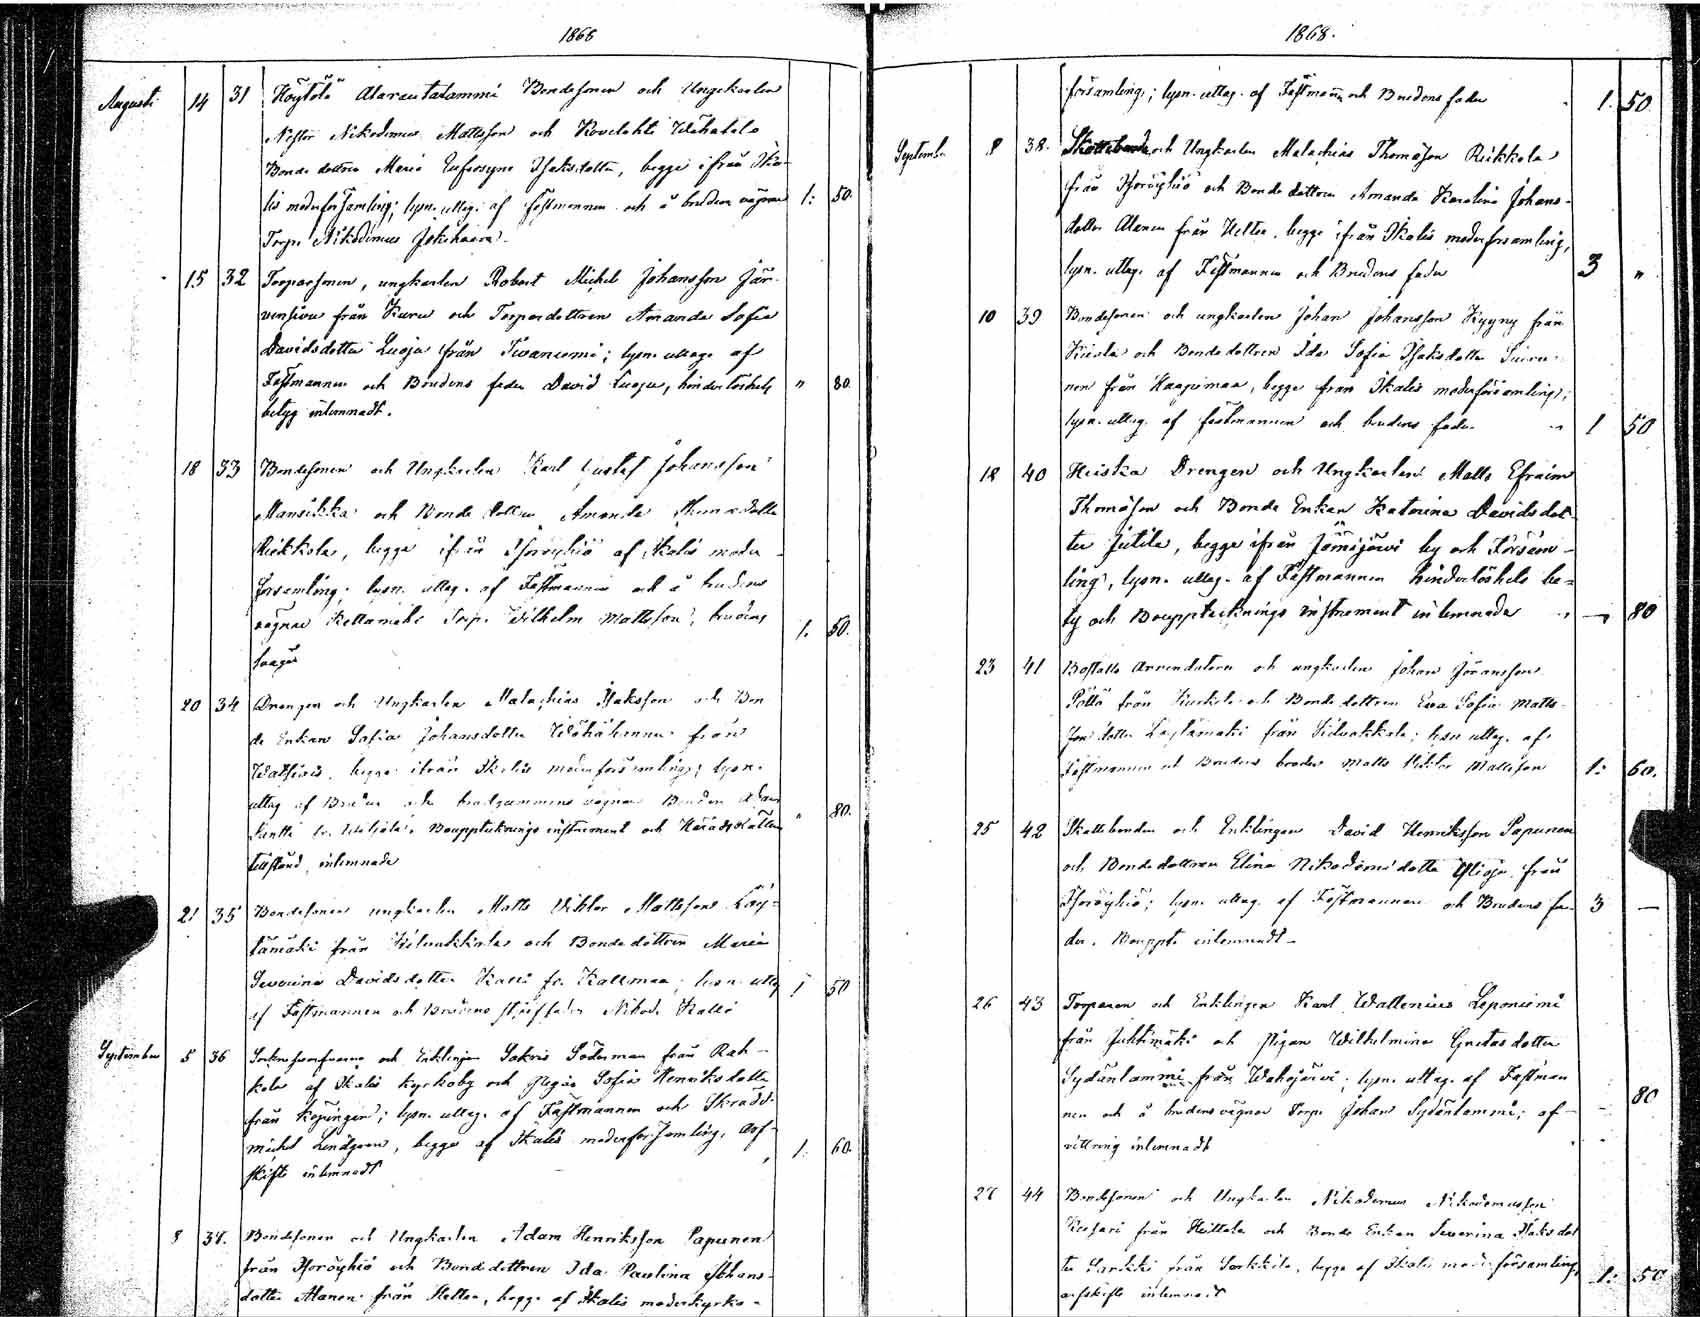 1868
Augusti 14 31 Höytölä Alarautalammi Bondesonen och Ungekarlen
Nestor Nikodemus Mattsson och Kovelahti Wähätalo
Bonde dottren Maria Eufrosyne Isaksdotter, begge ifrån Ika-
lis moderförsamling; lysn. uttag. af Fästmannen och å brudens vägnar 1: 50.
Torp. Nikodemus
15 32 Torparsonen, ungkarlen Robert Michel Johansson Jär-
vensivu från Kuru och Torparedottren Amanda Sofia
Davidsdotter Luoja från; lysn. uttag. af
Fästmannen och Brudens fader David Luoja, hinderlöshets " 80.
betyg inlemnadt.
18 33 Bondesonen och Ungkarlen Karl Gustaf Johansson
Mansikka och Bonde dottren Amanda Thomasdotter
Riikkola, begge ifrån Iforöyhiö af Ikalis moder-
församling; lysn. uttag. af Fästmannen och å brudens
vägnar Kettamäki Torp. Wilhelm Mattsson, brudens 1. 50.
20 34 Drengen och Ungkarlen Malachias Isaksson och Bon
de Enkan Sofia Johansdotter från
begge ifrån Ikalis moderförsamling; lysn.
uttag af och brudgummens vägnar Bonden " 80.
Bouppteckningsinstrument och Häradsrättens
tillstånd inlemnade
21 35 Bondesonen ungkarlen Matts Viktor Mattsson Löy-
tämäki från och Bonde dottren Maria
Severina Davidsdotter Kalli fr. Kallmaa; lysn. uttag 1 50
af Fästmannen och Brudens styffader Nikod. Kalli
September 5 36 och Enklingen Sakris Söderman från Rah-
kola af Ikalis kyrkoby och Pigan Sofia Henriksdotter
från Köpingen; lysn. uttag. af Fästmannen och Skradd.
Michel Lindgren, begge af Ikalis moderförsamling, arf- 1. 60.
skifte inlemnadt
8 37. Bondesonen och Ungkarlen Adam Henriksson Papunen
från Iforöyhiö och Bondedottren Ida Paulina Johans-
dotter Alanen från Heltee, begge af Ikalis moderkyrko-
1868.
församling; lysn. uttag. af Fästmann och Brudens fader 1. 50
September 8 38. Skattebonde och Ungkarlen Malachias Thomasson Riikkola
från Iforöyhiö och Bonde dottren Amanda Karolina Johans-
dotter Alanen från Heltee, begge ifrån Ikalis moderförsamling,
lysn. uttag. af Fästmannen och Brudens fader 3 "
10 39 Bondesonen och ungkarlen Johan Johansson Kyyny från
och Bonde dottren Ida Sofia Isaksdotter
nen från Haapimaa, begge från Ikalis moderförsamling;
lysn. uttag. af fästmannen och brudens fader " 1 50
18 40 Heiska Drengen och Ungkarlen Matts Efraim
Thomasson och Bonde Enkan Katarina Davidsdot-
ter Jutila, begge ifrån Jämijärvi by och Församl-
ling, lysn. uttag. af Fästmannen hinderlöshets be-
tyg och Boupptecknings instrument inlemnade " — 80
23 41 Boställs Arrendatorn och ungkarlen Johan Göransson
Pöllä från Kurkela och Bonde dottren Eva Sofia Matts-
son dotter Löytämäki från; lysn uttag. af
Fästmannen och Brudens broder Matts Viktor Mattsson 1: 60.
25 42 Skattebonden och Enklingen David Henriksson Papunen
och Bondedottren Elina Nikodemidotter Ylioja från
Iforöyhiö; lysn. uttag. af Fästmannen och Brudens fa- 3 —
der. Bouppt. inlemnadt—
26 43 Torparen och Enklingen Karl Wallenius Leponiemi
från Juhtimäki och Pigan Wilhelmina Gustasdotter
Sydänlammi från Wahojärvi; lysn. uttag. af Fästman
nen och å brudens vägnar Torp. Johan Sydänlammi; af- - 80
vittring inlemnadt
27 44 Bondesonen och Ungkarlen Nikodemus Nikodemusson
Keesari från Heittola och Bonde Enkan Severina Isaksdot
ter Sarkki från Sarkkila, begge af Ikalis moderförsamling, 1: 50
arfskifte inlemnadt